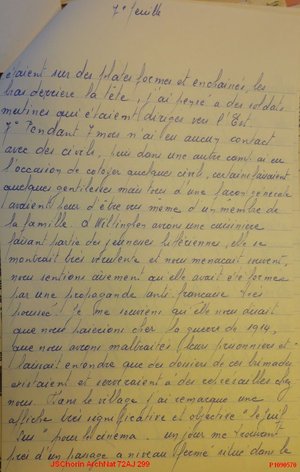 7° feuille
étaient sur des plates formes et enchainés, les
bras derrière la tête, j'ai pensé a des soldats
mutinés qui étaient dirigés vers l'Est
7° Pendant 7 mois n'ai eu aucun contact
avec des civils, puis dans une autre camp ai eu
l'occasion de cotoyer quelques civils, certains avaient
quelques gentillesses mais tous d'une façon générale
avaient peur d'être vu même d'un membre de
la famille. A avons une cuisinière
faisant partie des jeunesses hitlériennes, elle se
montrait très véhémente et nous menaçait souvent,
nous sentions aisement qu'elle avait été formée
par une propagande anti-française très
poussée! Je me souviens qu'elle nous disait
que nous passerions cher la guerre de 1914,
que nous avons maltraités leurs prisonniers et
laissait entendre que des dossiers de ces
existaient et serviraient a des représailles chez
nous. Dans le village j'ai remarqué une
affiche très significative et objective "le Juif
Sus" pour le cinéma. un jour me trouvant
près d'un passage a niveau fermé situé dans le
JSChorin ArchNat 72AJ 299
P1090576